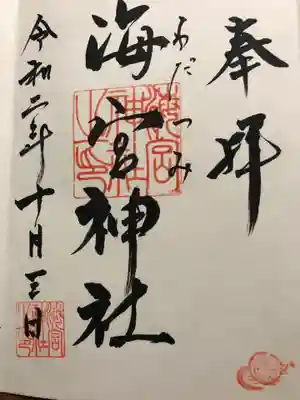 奉拝
わだつみ
海宮神社
令和二年十月三日